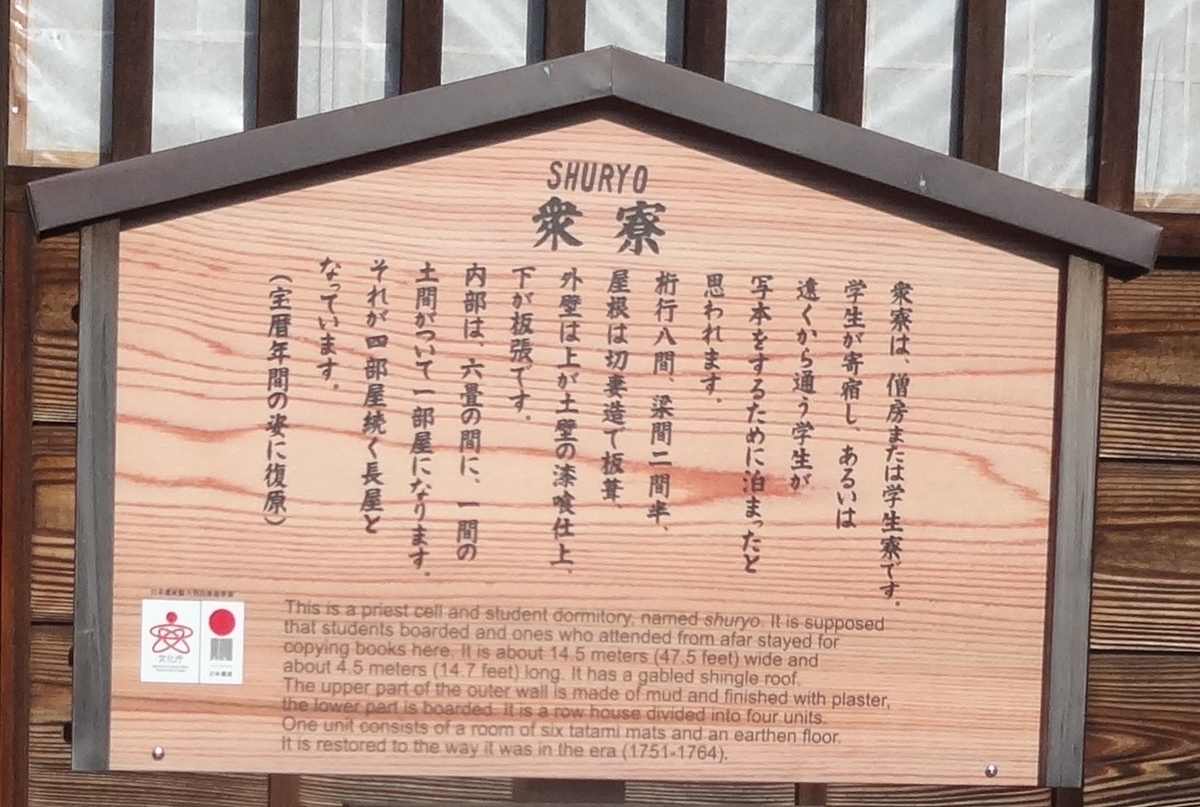 SHURYO
衆寮
衆寮は、僧房または学生寮です。
学生が寄宿し、あるいは
遠くから通う学生が
写本をするために泊まったと
思われます。
桁行八間、梁間二間半、
屋根は切妻造で板葺、
外壁は上が土壁の漆喰仕上、
下が板張です。
内部は、六畳の間に、一間の
土間がついて一部屋になります。
それが四部屋続く長屋と
なっています。
（宝暦年間の姿に復原）
文化庁
日本遺産
This is a priest cell and student dormitory, named shuryo. It is supposed
that students boarded and ones who attended from afar stayed for
copying books here. It is about 14.5 meters (47.5 feet) wide and
about 4.5 meters (14.7 feet) long. It has a gabled shingle roof.
The upper part of the outer wall is made of mud and finished with plaster,
the lower part is boarded. It is a row house divided into four units.
One unit consists of a room of six tatami mats and an earthen floor.
It is restored to the way it was in the era (1751-1764).